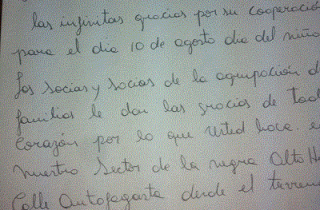 las infinitas gracias por su cooperació
para el dia 10 de agosto dia del niño
Los socias y socios de la agrupación d
familias le dan las gracias de Todo
Corazón por lo que Usted hace en
nuestro Sector de la negra Alto Ho
Calle Antofagasta desde el terrem